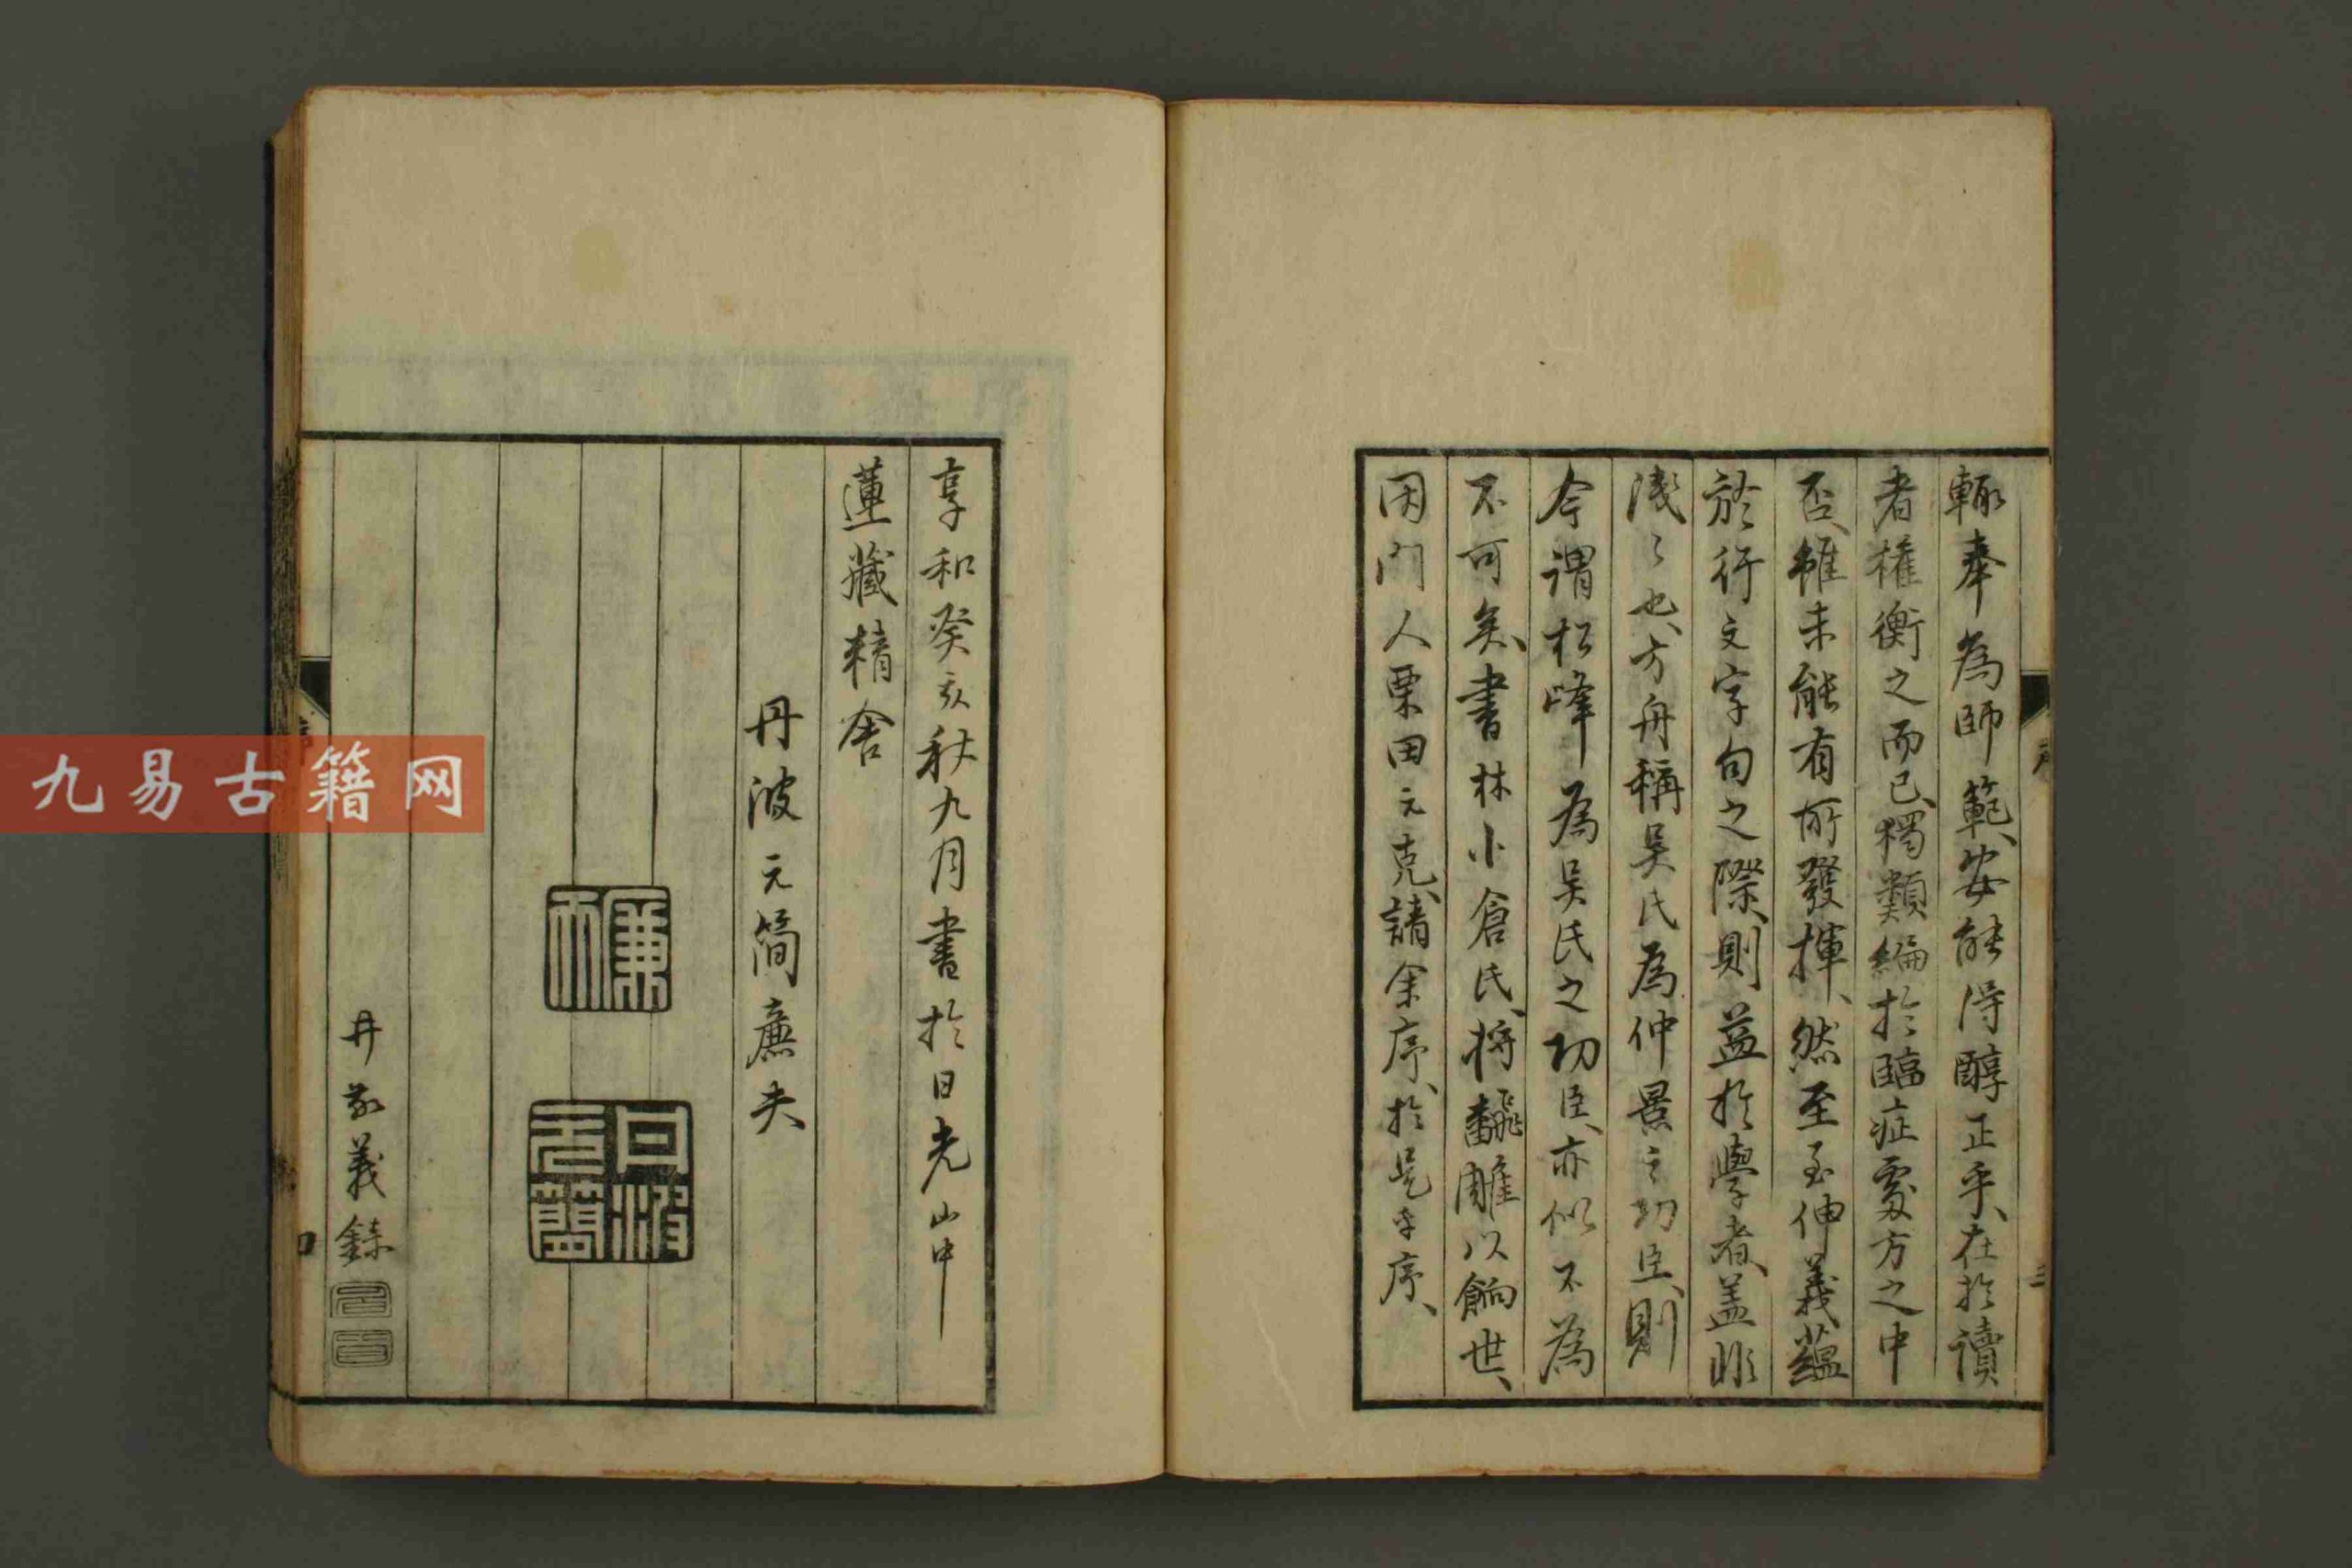 輙奉為師範、安能得醇正乎、在於讀
者権衡之而已、獨類編於臨症處方之中
否、雖未能有所發揮、然至至伸義蘊
於行文字句之際、則益於學者、蓋非
淺〻也、方舟稱吳氏為仲景之功臣、則
今謂松峰為吳氏之功臣、亦似不為
不可矣、書林小倉氏、将飜雕以餉世、
因門人栗田元克、請余序、於是乎序、
序
三
享和癸亥秋九月書於日光山中
蓮藏精舍
丹波元簡廉夫
廉夫
丹波元簡
井敬義録
序
四
九易古籍网